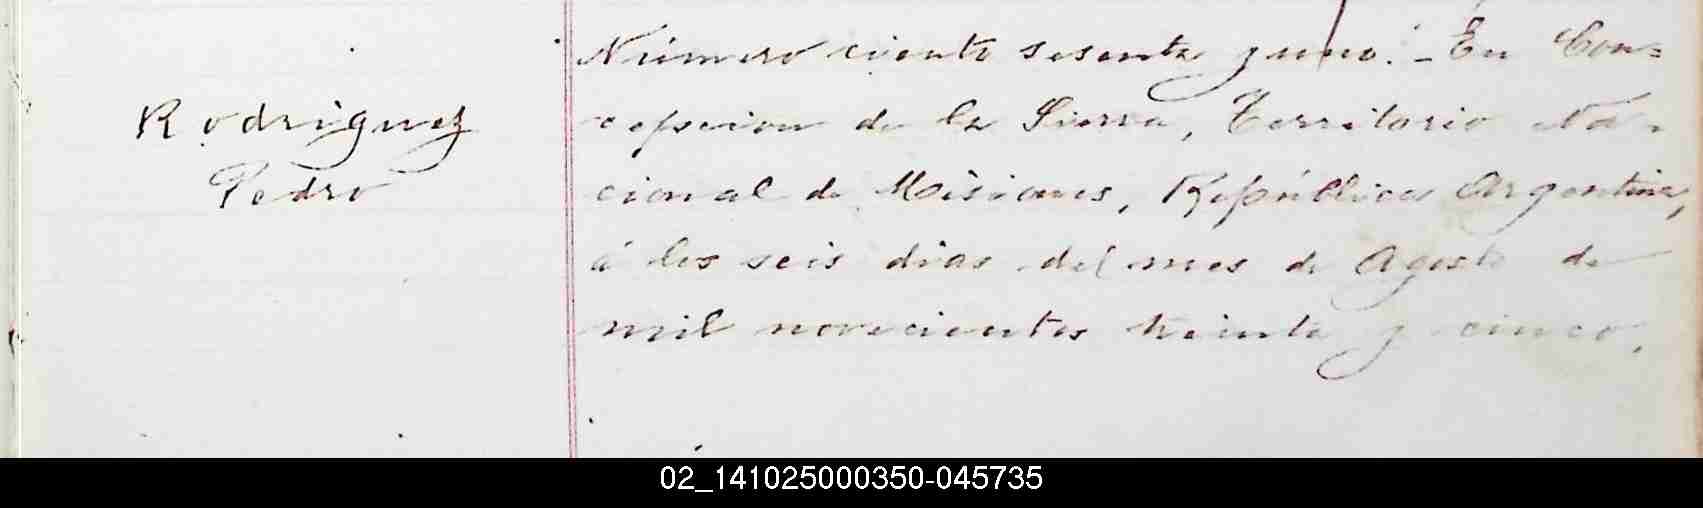 Rodriguez
Pedro
Número ciento sesenta y uno. - En Con=
cepcion de la Sierra, Territorio Na-
cional de Misiones, República Argentina,
á los seis dias del mes de Agosto de
mil novecientos treinta y cinco,
02_141025000350-045735